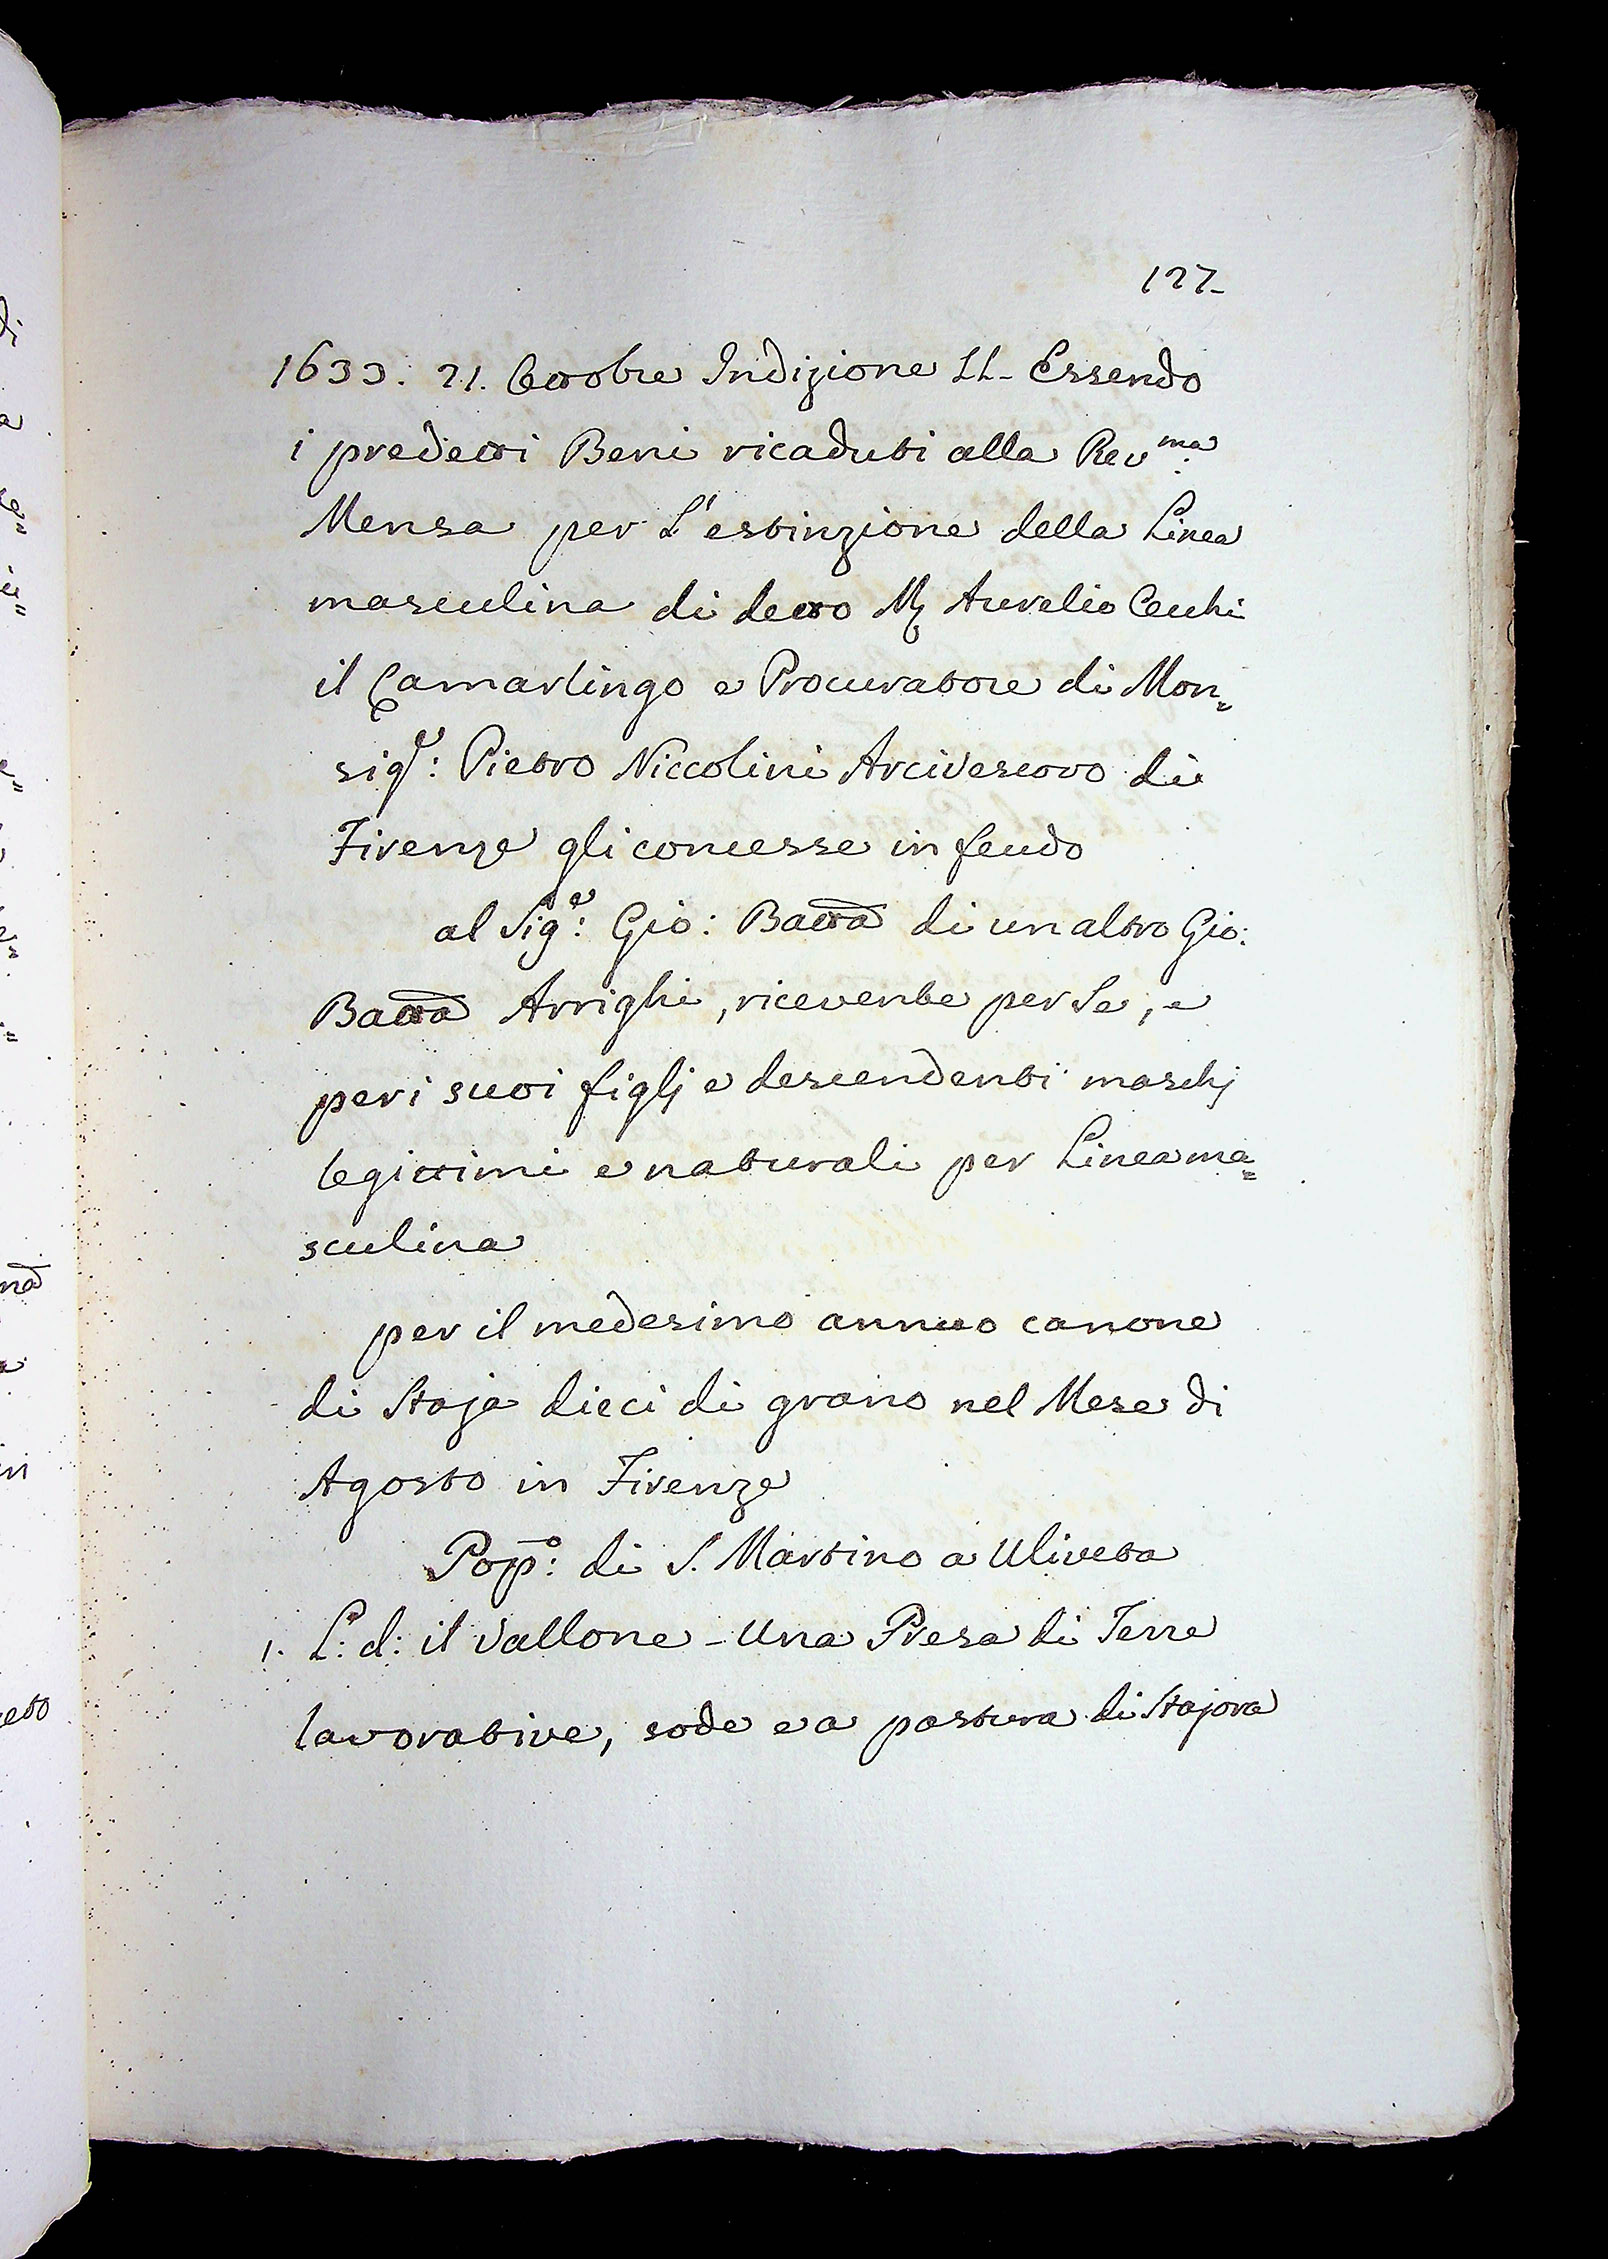 127.
1633. 21. Ottobre Indizione II. Essendo
i predetti Beni ricaduti alla Rev.ma
Mensa per L'estinzione della Linea
masculina di detto M. Aurelio Cecchi
il Camarlingo e Procuratore di Mon=
sig.r: Pietro Niccolini Arcivescovo di
Firenze gli concesse in feudo
al Sig.e: Gio: Batta di un altro Gio:
Batta Arrighi, ricevente per Se, e
per i suoi figlj e descendenti maschj
legittimi e naturali per Linea ma=
sculina
per il medesimo annuo canone
di Staja dieci di grano nel Mese di
Agosto in Firenze
Pop.o: di S. Martino a Uliveta
1. L: d: il Vallone - Una Presa di Terre
lavorative, sode e a pastura di Stajora